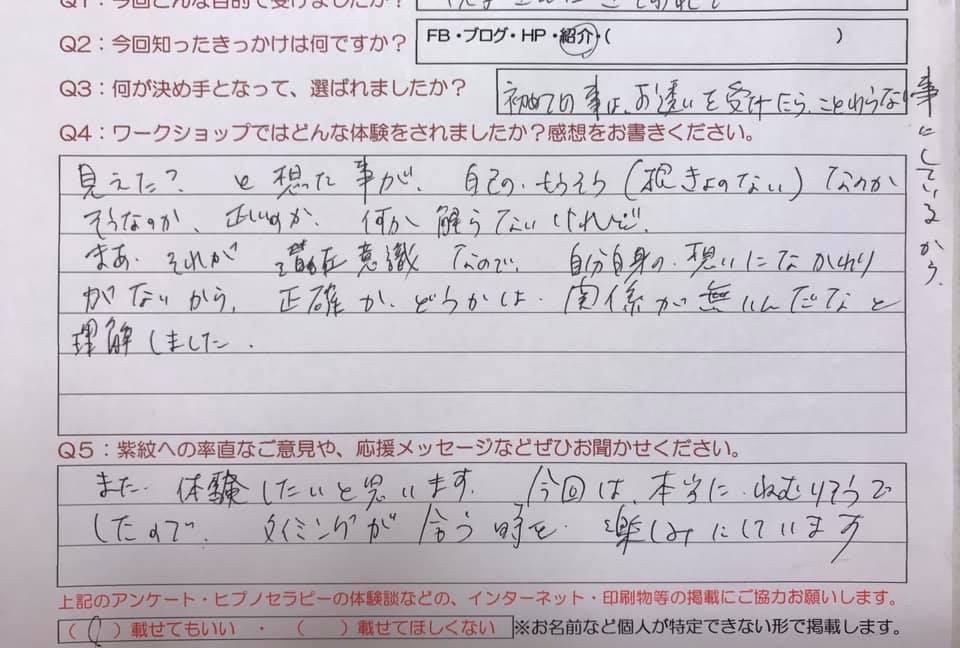 Q1：今回どんな目的で受けましたか？
Q2：今回知ったきっかけは何ですか？ FB・ブログ・HP・紹介・（ ）
Q3：何が決め手となって、選ばれましたか？ 初めての事は、お誘いを受けたら、ことわらない事にしているから、
Q4：ワークショップではどんな体験をされましたか？感想をお書きください。
見えた？ と想った事が、自己の・もうそう（根きょのない）なのか
そうなのか、正しいのか、何か解らないけれど、
まあ、それが潜在意識なので、自分自身の・想いになかわり
がないから、正確か、どうかは・関係が無いんだなと
理解しました．
Q5：紫紋への率直なご意見や、応援メッセージなどぜひお聞かせください。
また・体験したいと思います. 今回は、本当に・ねむりそうで
したので、タイミングが合う時を・楽しみにしています
上記のアンケート・ヒプノセラピーの体験談などの、インターネット・印刷物等の掲載にご協力お願いします。
（ ）載せてもいい ・ （ ）載せてほしくない ※お名前など個人が特定できない形で掲載します。